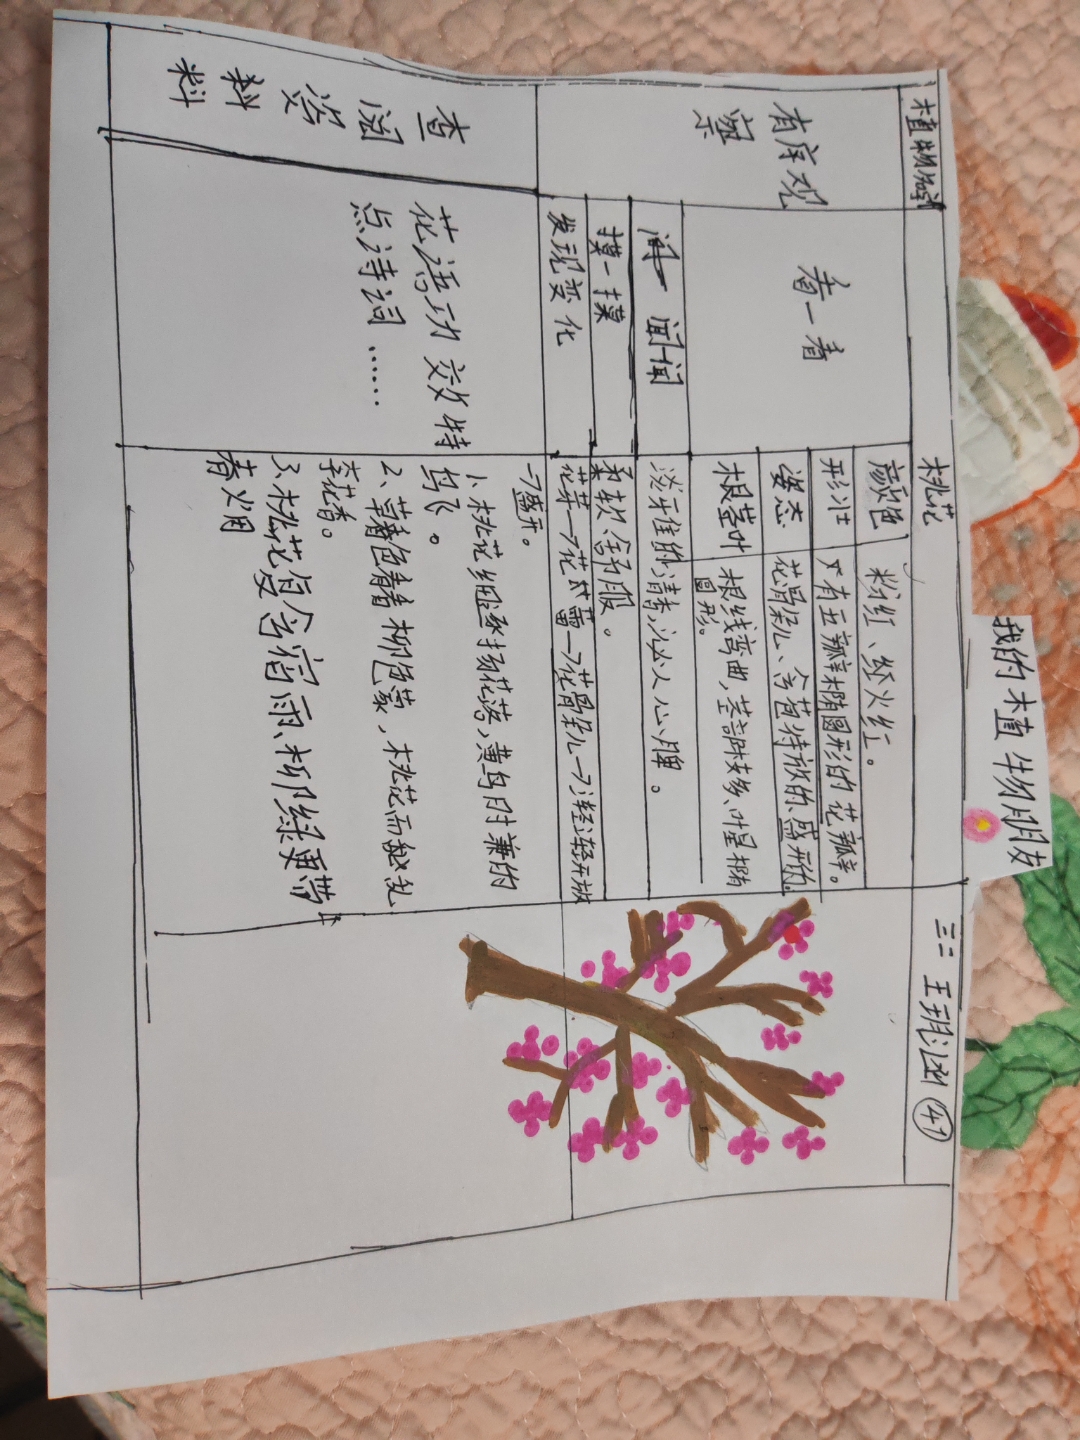 我的植物朋友
植物名称
桃花
三二 王玥涵 41
有序观
察
看一看
颜色
粉红、经火红。
形状
只有五瓣椭圆形的花瓣。
姿态
花骨朵儿、含苞待放的、盛开的。
根茎叶
根线弯曲，茎部较多、叶呈椭
圆形。
闻一闻
淡雅的清香，沁人心脾。
摸一摸
柔软舒服。
发现变化
花芽→花蕾→花骨朵儿→轻轻开放
→盛开。
查阅
资料
料
花语功效特
点诗词……
1、桃花细逐杨花落，黄鸟时兼的
鸟飞。
2、草色青青柳色黄，桃花历乱
李花香。
3、桃花复含宿雨、柳绿更带
春烟